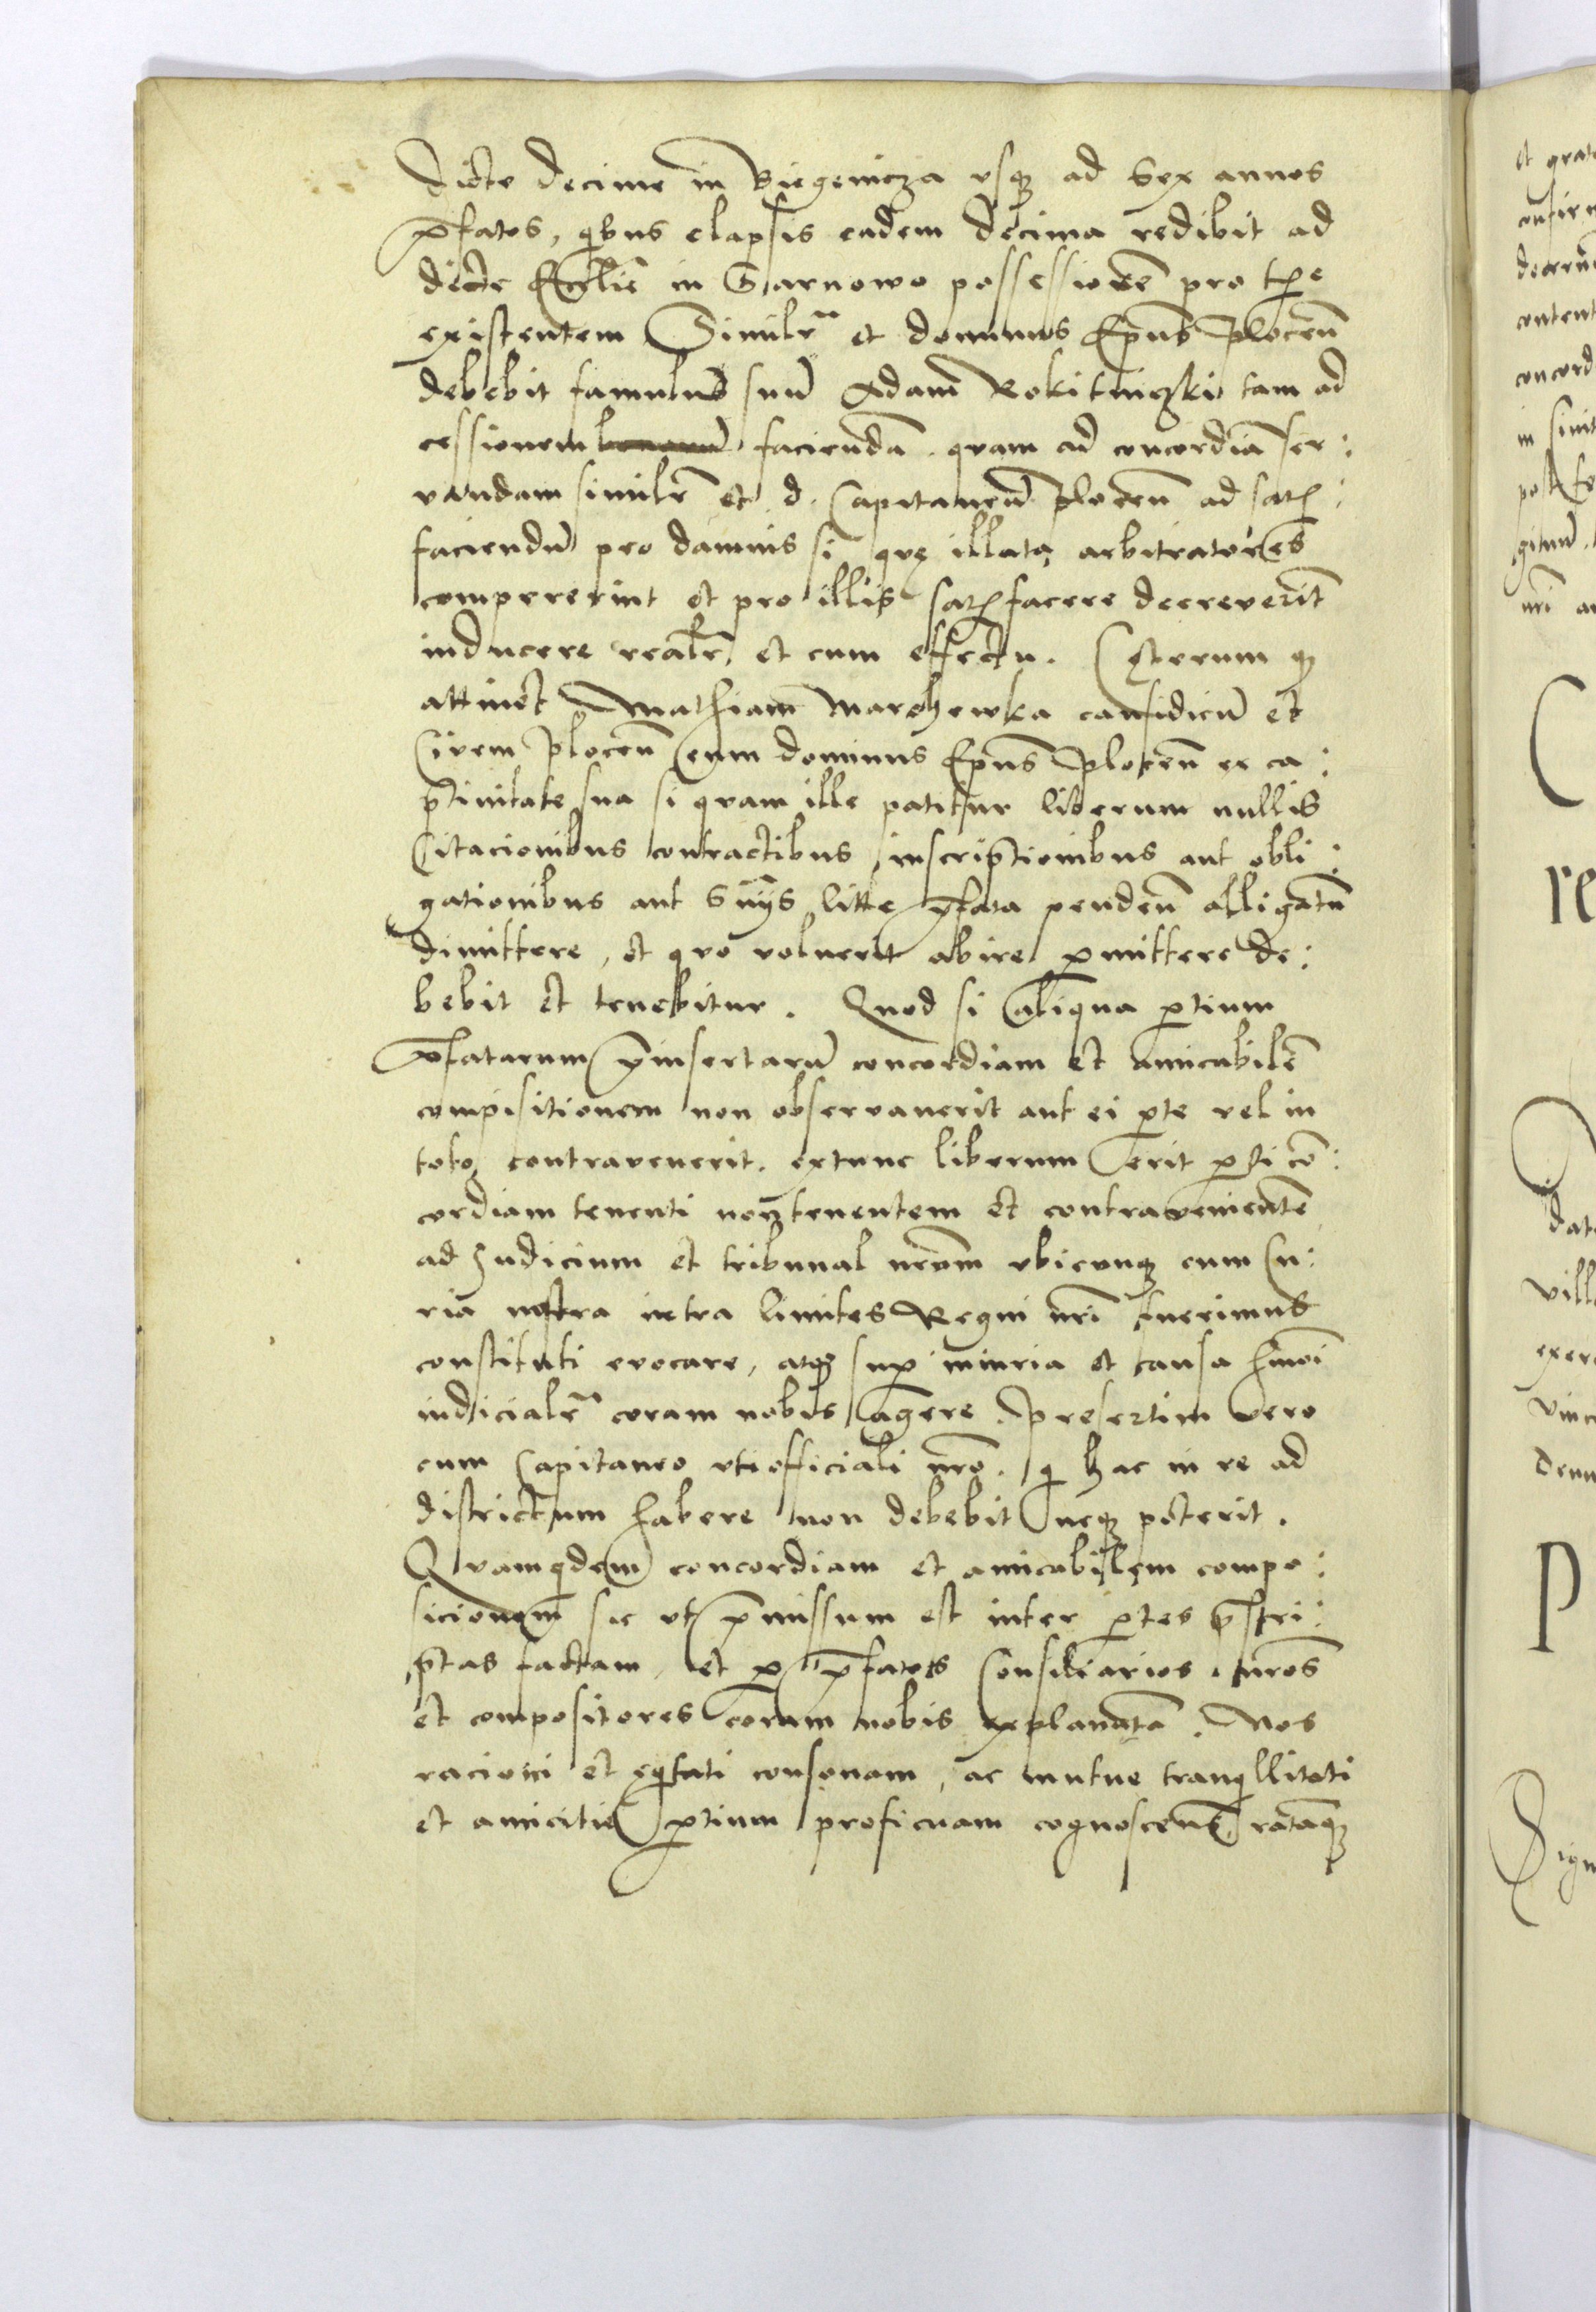 dicte decime in Biegenicza vsq̄ ad Sex annos
p̄fatos, qibus elapsis eadem decima redibit ad
dicte Eccl̄ie in Sarnowo possessorē pro tp̄e
existentem Similr̄ et dominus Ep̄us Plocen̄
debebit famulūs suū Adam̄ Rokitniczki tam ad
cessionem faciendā. quam ad concordiā ser:
vandam similr̄ et d. Capitaneū plocen̄ ad satis:
faciendū pro damnis si quę illata arbitratores
compererint et pro illis satisfacere decreverīt
inducere realr̄ et cum effectu. Cęterum q̄
attinet Mathiam̄ Marchewka causidicū et
Civem Plocen̄ eum dominus Ep̄us Plocen̄ ex ca:
ptivitate sua si quam ille patitur liberum nullis
Citacionibus contractibus inscriptionibus aut obli:
gationibus aut Sn̄ijs litte p̄fata penden̄ alligatū
dimittere, et quo voluerit abire p̱mittere de:
bebit et tenebitur. Quod si aliqua p̱tium
p̄fatarum p̄insertarū concordiam et amicabilē
compisitionem non observaverit aut ei p̱te vel in
toto contravenerit. extunc liberum erit p̱ti cō:
cordiam tenenti non tenentem et contravenientē
ad Judicium et tribunal nr̄m vbicunq̄ cum Cu:
ria nostra intra limites Regni nr̄i fuerimus
constituti evocare, atq̄ sup̱ iniuria et causa hm̄oi
iudicialr̄ coram nobis agere. Presertim vero
cum Capitaneo vti officiali nr̄o. qi hac in re ad
districtum habere non debebit neq̄ poterit.
Quamqidem concordiam et amicabilem compo:
sicionem̄ sic vt p̄missum est inter p̱tes p̄scri:
ptas factam, et p̱ p̄fatos Consiliarios nr̄os
et compositores coram nobis explanatā. Nos
racioni et eqitati consonam, ac mutue tranqillitati
et amicitie p̱tium proficuam cognoscen̄ ratāq̄